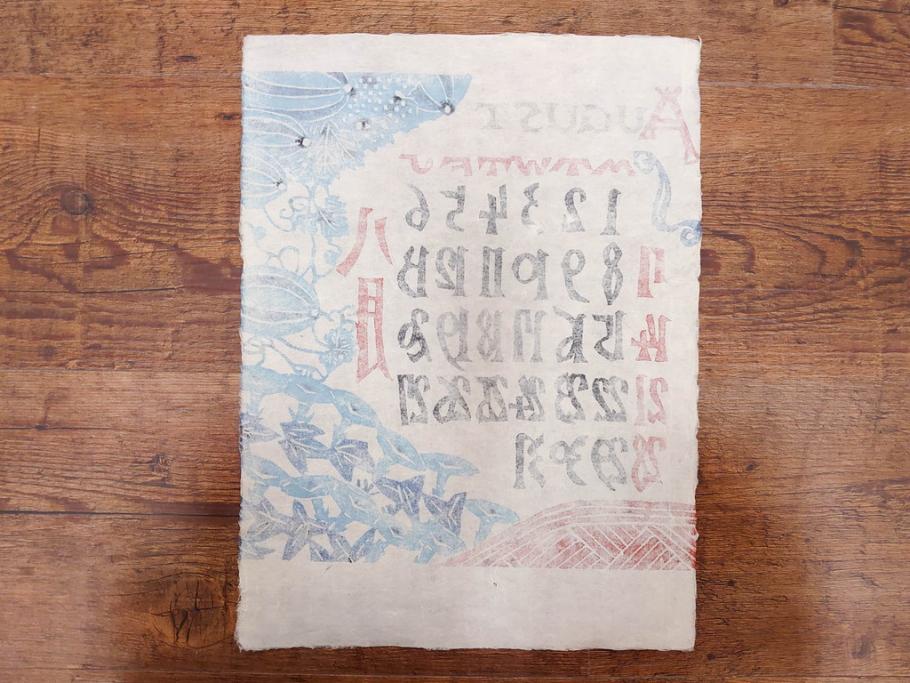 AUGUST
1 2 3 4 5 6
7 8 9 10 11 12 13
14 15 16 17 18 19 20
21 22 23 24 25 26 27
28 29 30 31
八月